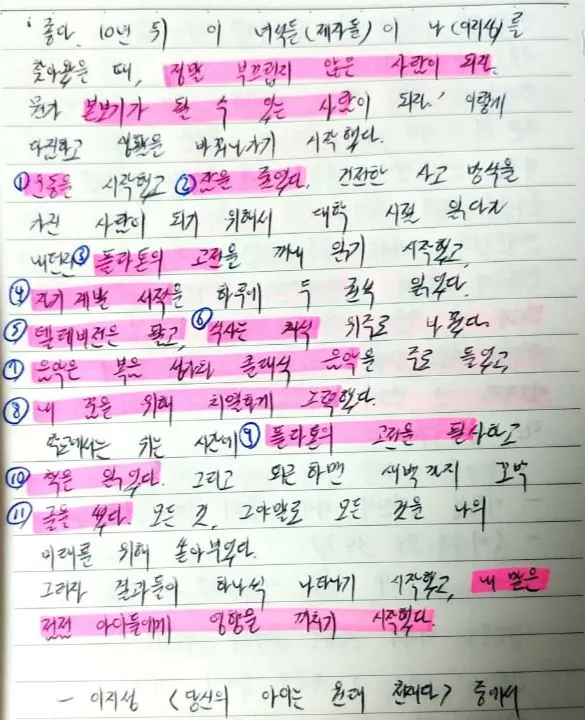 '좋다. 10년 뒤 이 녀석들(제자들)이 나(이지성)를
찾아왔을 때, 정말 부끄럽지 않은 사람이 되자.
뭔가 본보기가 될 수 있는 사람이 되자.' 이렇게
다짐하고 생활을 바꿔나가기 시작했다.
① 운동을 시작했고 ② 잠을 줄였다. 건전한 사고 방식을
가진 사람이 되기 위해서 대학 시절 읽다가
내던진 ③ 플라톤의 고전을 꺼내 읽기 시작했고,
④ 자기 계발 서적을 하루에 두 권씩 읽었다.
⑤ 텔레비전은 팔고, ⑥ 식사는 채식 위주로 나갔다.
⑦ 음악은 복음 성가와 클래식 음악을 주로 들었고
⑧ 내 꿈을 위해 치열하게 노력했다.
학교에서는 쉬는 시간에 ⑨ 플라톤의 고전을 필사하고
⑩ 책을 읽었다. 그리고 퇴근하면 새벽까지 꼬박
⑪ 글을 썼다. 모든 것, 그야말로 모든 것을 나의
미래를 위해 쏟아부었다.
그러자 결과들이 하나씩 나타나기 시작했고, 내 말은
점점 아이들에게 영향을 끼치기 시작했다.
- 이지성 <당신의 아이는 원래 천재다> 중에서